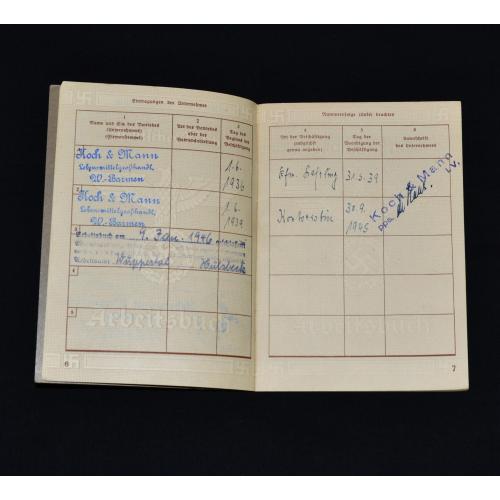 Eintragungen des Unternehmers
1
Name und Sitz des Betriebes
(Unternehmens)
(Firmenstempel)
2
Art des Betriebes
oder der
Betriebsabteilung
3
Tag des
Beginns der
Beschäftigung
Koch & Mann
Lebensmittelgroßhandl,
W-Barmen
1.6.
1936
2
Koch & Mann
Lebensmittelgroßhandl,
W-Barmen
1.6.
1939
3
7. Jan. 1946
Arbeitsamt Wuppertal
4
5
Arbeitsbuch
6
Nummernfolge beachten
4
Art der Beschäftigung
(möglichst
genau angeben)
5
Tag der
Beendigung der
Beschäftigung
6
Unterschrift
des Unternehmers
31.3.39
Koch & Mann
ppa.
30.9.
1945
Arbeitsbuch
7